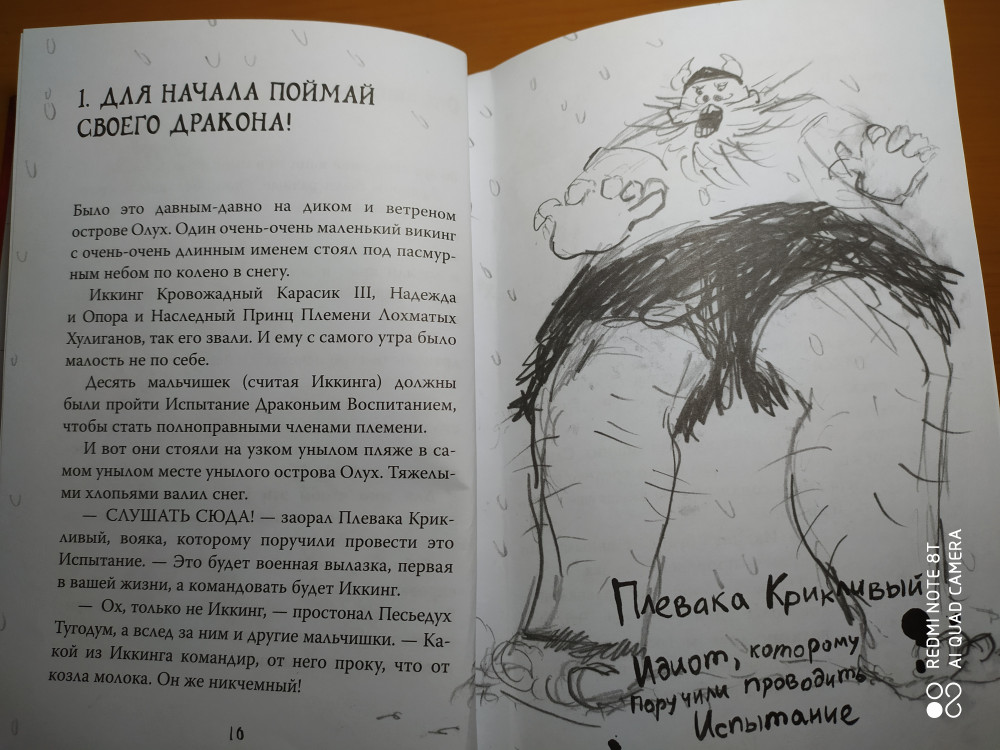 1. ДЛЯ НАЧАЛА ПОЙМАЙ
СВОЕГО ДРАКОНА!
Было это давным-давно на диком и ветреном
острове Олух. Один очень-очень маленький викинг
с очень-очень длинным именем стоял под пасмур-
ным небом по колено в снегу.
Иккинг Кровожадный Карасик III, Надежда
и Опора и Наследный Принц Племени Лохматых
Хулиганов, так его звали. И ему с самого утра было
малость не по себе.
Десять мальчишек (считая Иккинга) должны
были пройти Испытание Драконьим Воспитанием,
чтобы стать полноправными членами племени.
И вот они стояли на узком унылом пляже в са-
мом унылом месте унылого острова Олух. Тяжелы-
ми хлопьями валил снег.
— СЛУШАТЬ СЮДА! — заорал Плевака Крик-
ливый, вояка, которому поручили провести это
Испытание. — Это будет военная вылазка, первая
в вашей жизни, а командовать будет Иккинг.
— Ох, только не Иккинг, — простонал Песьедух
Тугодум, а вслед за ним и другие мальчишки. — Ка-
кой из Иккинга командир, от него проку, что от
козла молока. Он же никчемный!
10
Плевака Крикливый
Идиот, которому
поручили проводить
Испытание
REDMI NOTE 8T
AI QUAD CAMERA